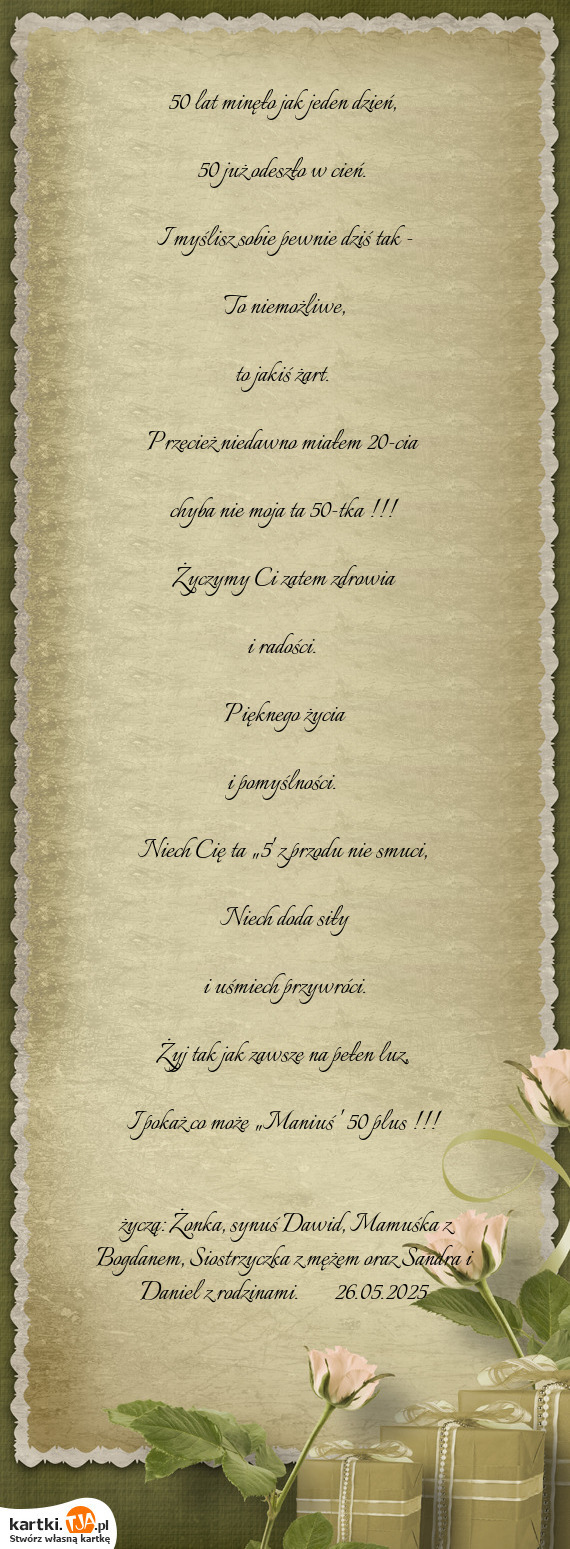 50 lat minęło jak jeden dzień,
50 już odeszło w cień.
I myślisz sobie pewnie dziś tak -
To niemożliwe,
to jakiś żart.
Przecież niedawno miałem 20-cia
chyba nie moja ta 50-tka !!!
Życzymy Ci zatem zdrowia
i radości.
Pięknego życia
i pomyślności.
Niech Cię ta „5' z przodu nie smuci,
Niech doda siły
i uśmiech przywróci.
Żyj tak jak zawsze na pełen luz,
I pokaż co może „Maniuś' 50 plus !!!
życzą: Żonka, synuś Dawid, Mamuśka z
Bogdanem, Siostrzyczka z mężem oraz Sandra i
Daniel z rodzinami. 26.05.2025
kartki.TJA.pl
Stwórz własną kartkę